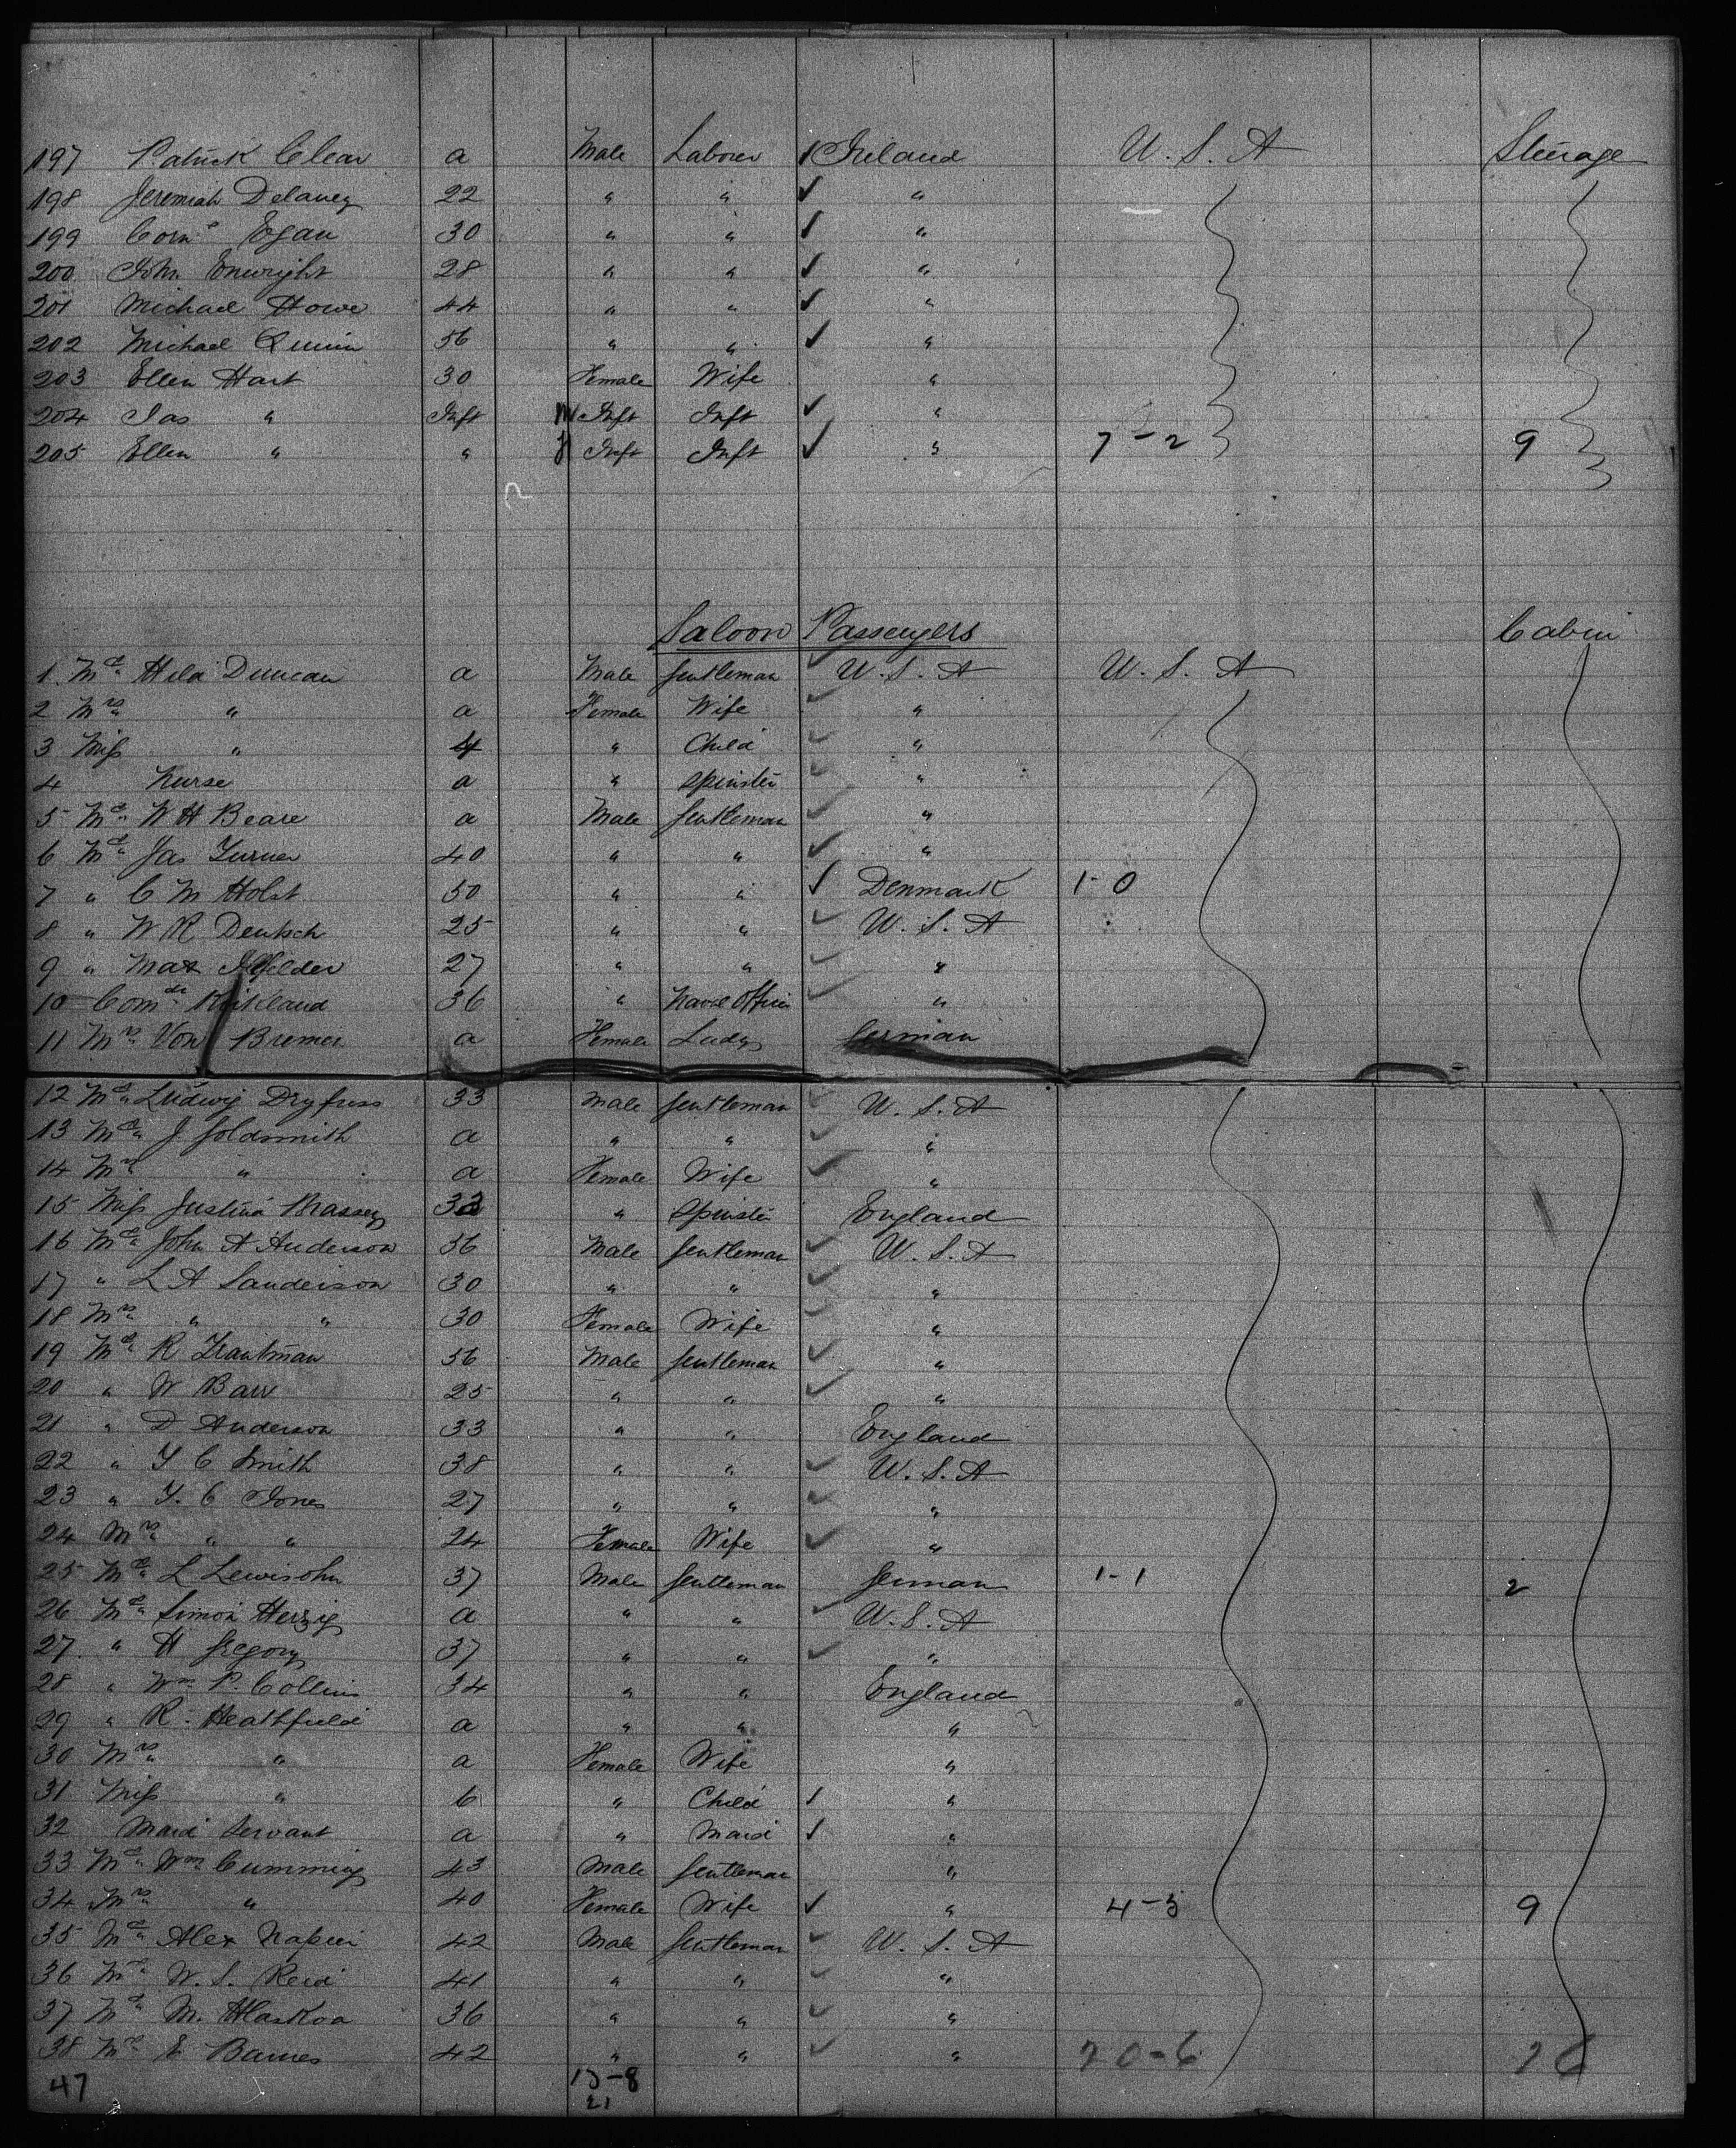 197 Patrick Clear a Male Laborer Ireland U.S.A Steerage
198 Jeremiah Delaney 22 " " "
199 Corns Egan 30 " " "
200 John Enwright 28 " " "
201 Michael Howe 44 " " "
202 Michael Quinn 56 " " "
203 Ellen Hart 30 Female Wife "
204 Jas " Inft M Inft Inft "
205 Ellen " " f Inft Inft " 7-2 9
Saloon Passengers Cabin
1. Mr Duncan a Male Gentleman U.S.A U.S.A
2 Mrs " a Female Wife "
3 Miss " 4 " Child "
4 Nurse a " Spinster "
5 Mr W H Beare a Male Gentleman "
6 Mr Jas Turner 40 " " "
7 " C M Holst 50 " " Denmark 1-0
8 " W R Deutsch 25 " " U.S.A
9 " Max 27 " " "
10 Comdr Kirkland 36 " Naval Officer "
11 Mrs Von Bremer a Female Lady German
12 Mr Ludwig Dryfuss 33 Male Gentleman U.S.A
13 Mr J Goldsmith a " " "
14 Mrs " a Female Wife "
15 Miss Justina Brassey " Spinster England
16 Mr John A Anderson 36 Male Gentleman U.S.A
17 " L A Sanderson 30 " " "
18 Mrs " " 30 Female Wife "
19 Mr R Trautman 56 Male Gentleman "
20 " W Barr 25 " " "
21 " D Anderson 33 " " England
22 " T C Smith 38 " " U.S.A
23 " T. C Jones 27 " " "
24 Mrs " " 24 Female Wife "
25 Mr L Lewisohn 37 Male Gentleman German 1-1 2
26 Mr Simon Herzig a " " U.S.A
27. " H Gregory 37 " " "
28 " Wm P. Collins 34 " " England
29 " R. Heathfield a " " "
30 Mrs " a Female Wife "
31. Miss " 6 " Child "
32 Maid Servant a " Maid "
33 Mr Wm Cumming 43 Male Gentleman "
34 Mrs " 40 Female Wife " 4-5 9
35 Mr Alex Napier 42 Male Gentleman U.S.A
36 Mr W. S. Reid 41 " " "
37 Mr M. 36 " " "
38 Mr E Barnes 42 " " " 20-6 26
47 13-8
21